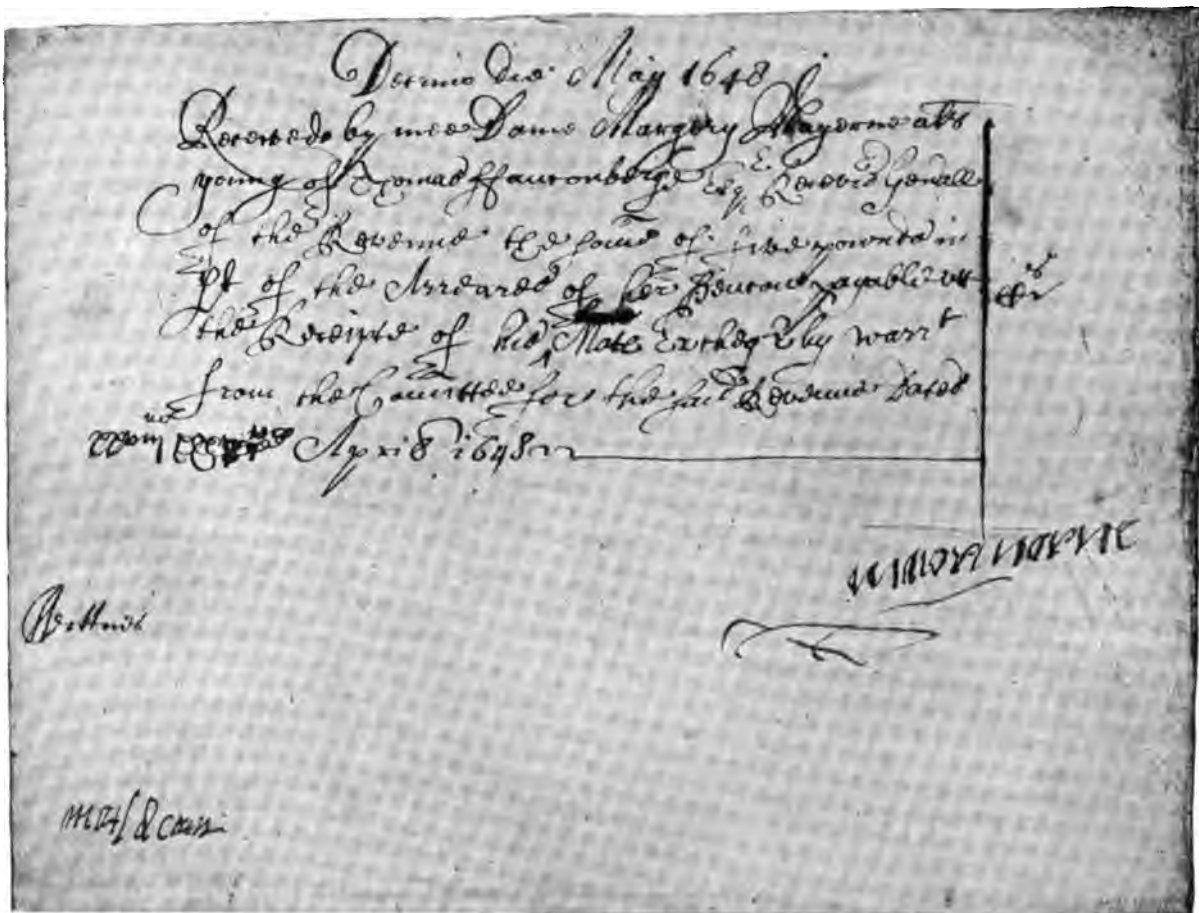 Decimo die May 1648
Received by mee Dame Margery Mayerne als
young of Thomas ffauconberge Esqr Receivor Genall
of the Revenue the some of five pounds in
pt of the Arreares of her Pencon payable att
the Receipte of his Mats Excheqr by warrt
from the Comittee for the said Revenue Dated
April 1648
Wittnes